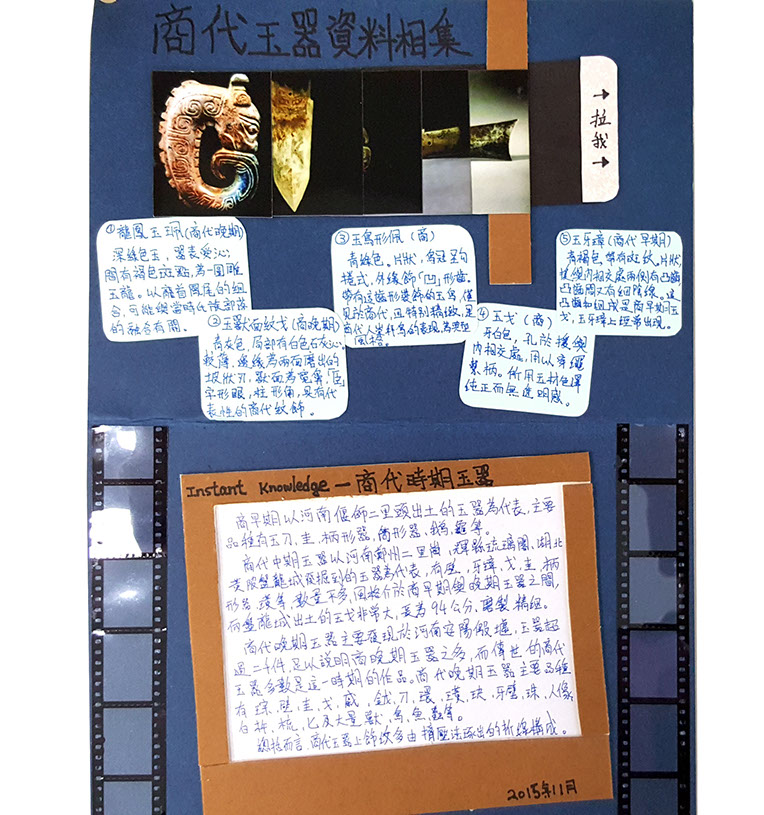 商代玉器資料相集
→拉我→
①龍鳳玉玦(商代晚期)
深綠色玉,器表受沁,
間有褐色斑點,為一圓雕
玉龍。以龍首鳳尾的組
合,可能與當時氏族部落
的融合有關。
②玉獸面紋戈(商晚期)
青灰色,局部有白色石灰沁,
較薄,邊緣為兩面磨出的
坡狀刃,獸面為寬鼻,「臣」
字形眼,柱形角,具有代
表性的商代紋飾。
③玉鳥形佩(商)
青綠色。片狀,鳥冠呈勾
捲式,外緣飾「凹」形齒。
帶有這齒形裝飾的玉鳥,僅
見於商代,且特別精緻,是
商代人類科鳥的表現,為典型
風格。
④玉戈(商)
牙白色,孔於援與
內相交處,用以穿繩
紮柄。所用玉材色澤
純正而無透明感。
⑤玉牙璋(商代早期)
青褐色,帶有斑紋。片狀,
援與內相交處兩側有凸齒,
凸齒間又有細陰線。這
凸齒和細線是商早期玉
戈,玉牙璋上經常出現。
Instant Knowledge—商代時期玉器
商早期以河南偃師二里頭出土的玉器為代表,主要
品種有玉刀、圭、柄形器、筒形器、鵝、龜等。
商代中期玉器以河南鄭州二里崗,輝縣琉璃閣、湖北
黃陂盤龍城發掘到的玉器為代表,有璧、牙璋、戈、圭、柄
形器、璜等,數量不多,風格介於商早期與晚期玉器之間,
而盤龍城出土的玉戈非常大,長為94公分,磨製精細。
商代晚期玉器主要發現於河南安陽殷墟,玉器超
過二千件,足以說明商晚期玉器之多,而傳世的商代
玉器多數是這一時期的作品。商代晚期玉器主要品種
有琮、璧、圭、戈、戚、鉞、刀、環、璜、玦、牙璧、珠、人像,
臼、杵、梳、匕及大量獸、鳥、魚、蟲等。
總括而言,商代玉器上飾紋多由擠壓法琢出的折線構成。
2015年11月